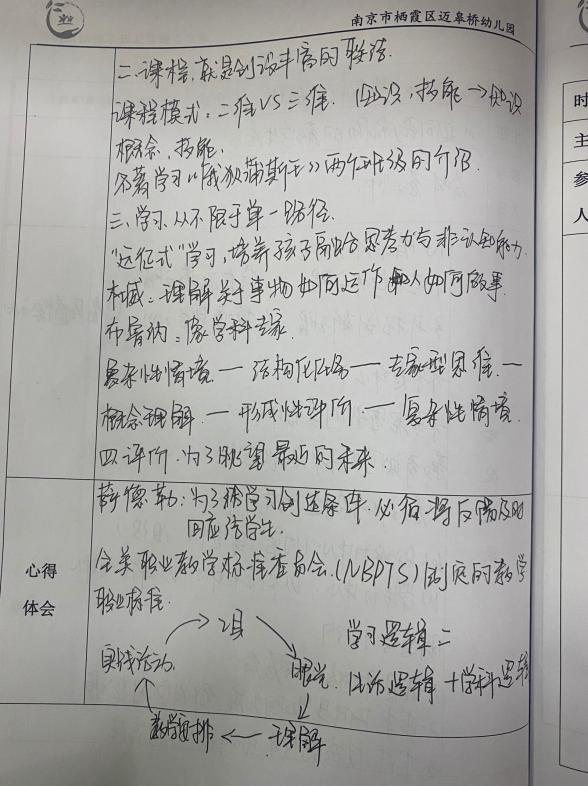 南京市栖霞区迈皋桥幼儿园
二.课程,就是创设丰富的
课程模式:二维VS三维. 知识,技能→知识
概念,技能.
名著学习《我状蒲斯王》两个班级的介绍
三.学习.从不限于单一路径.
"远征式"学习,培养孩子高阶思考力与非认知能力.
布鲁纳:像学科专家.
理解关于事物如何运作和人如何做事.
复杂性情境—结构化任务—专家型思维—
概念理解—形成性评价—复杂性情境.
四.评价.为了眺望最近的未来.
心得
体会
薛德勒:为了给学习创造条件.必须将反馈及时
回应给学生.
全美职业教学标准委员会.(NBPTS)制定的教学
职业标准.
学习逻辑二
目
眼光
理解
教学安排
实践活动
生活逻辑+学科逻辑
时
主
参
人